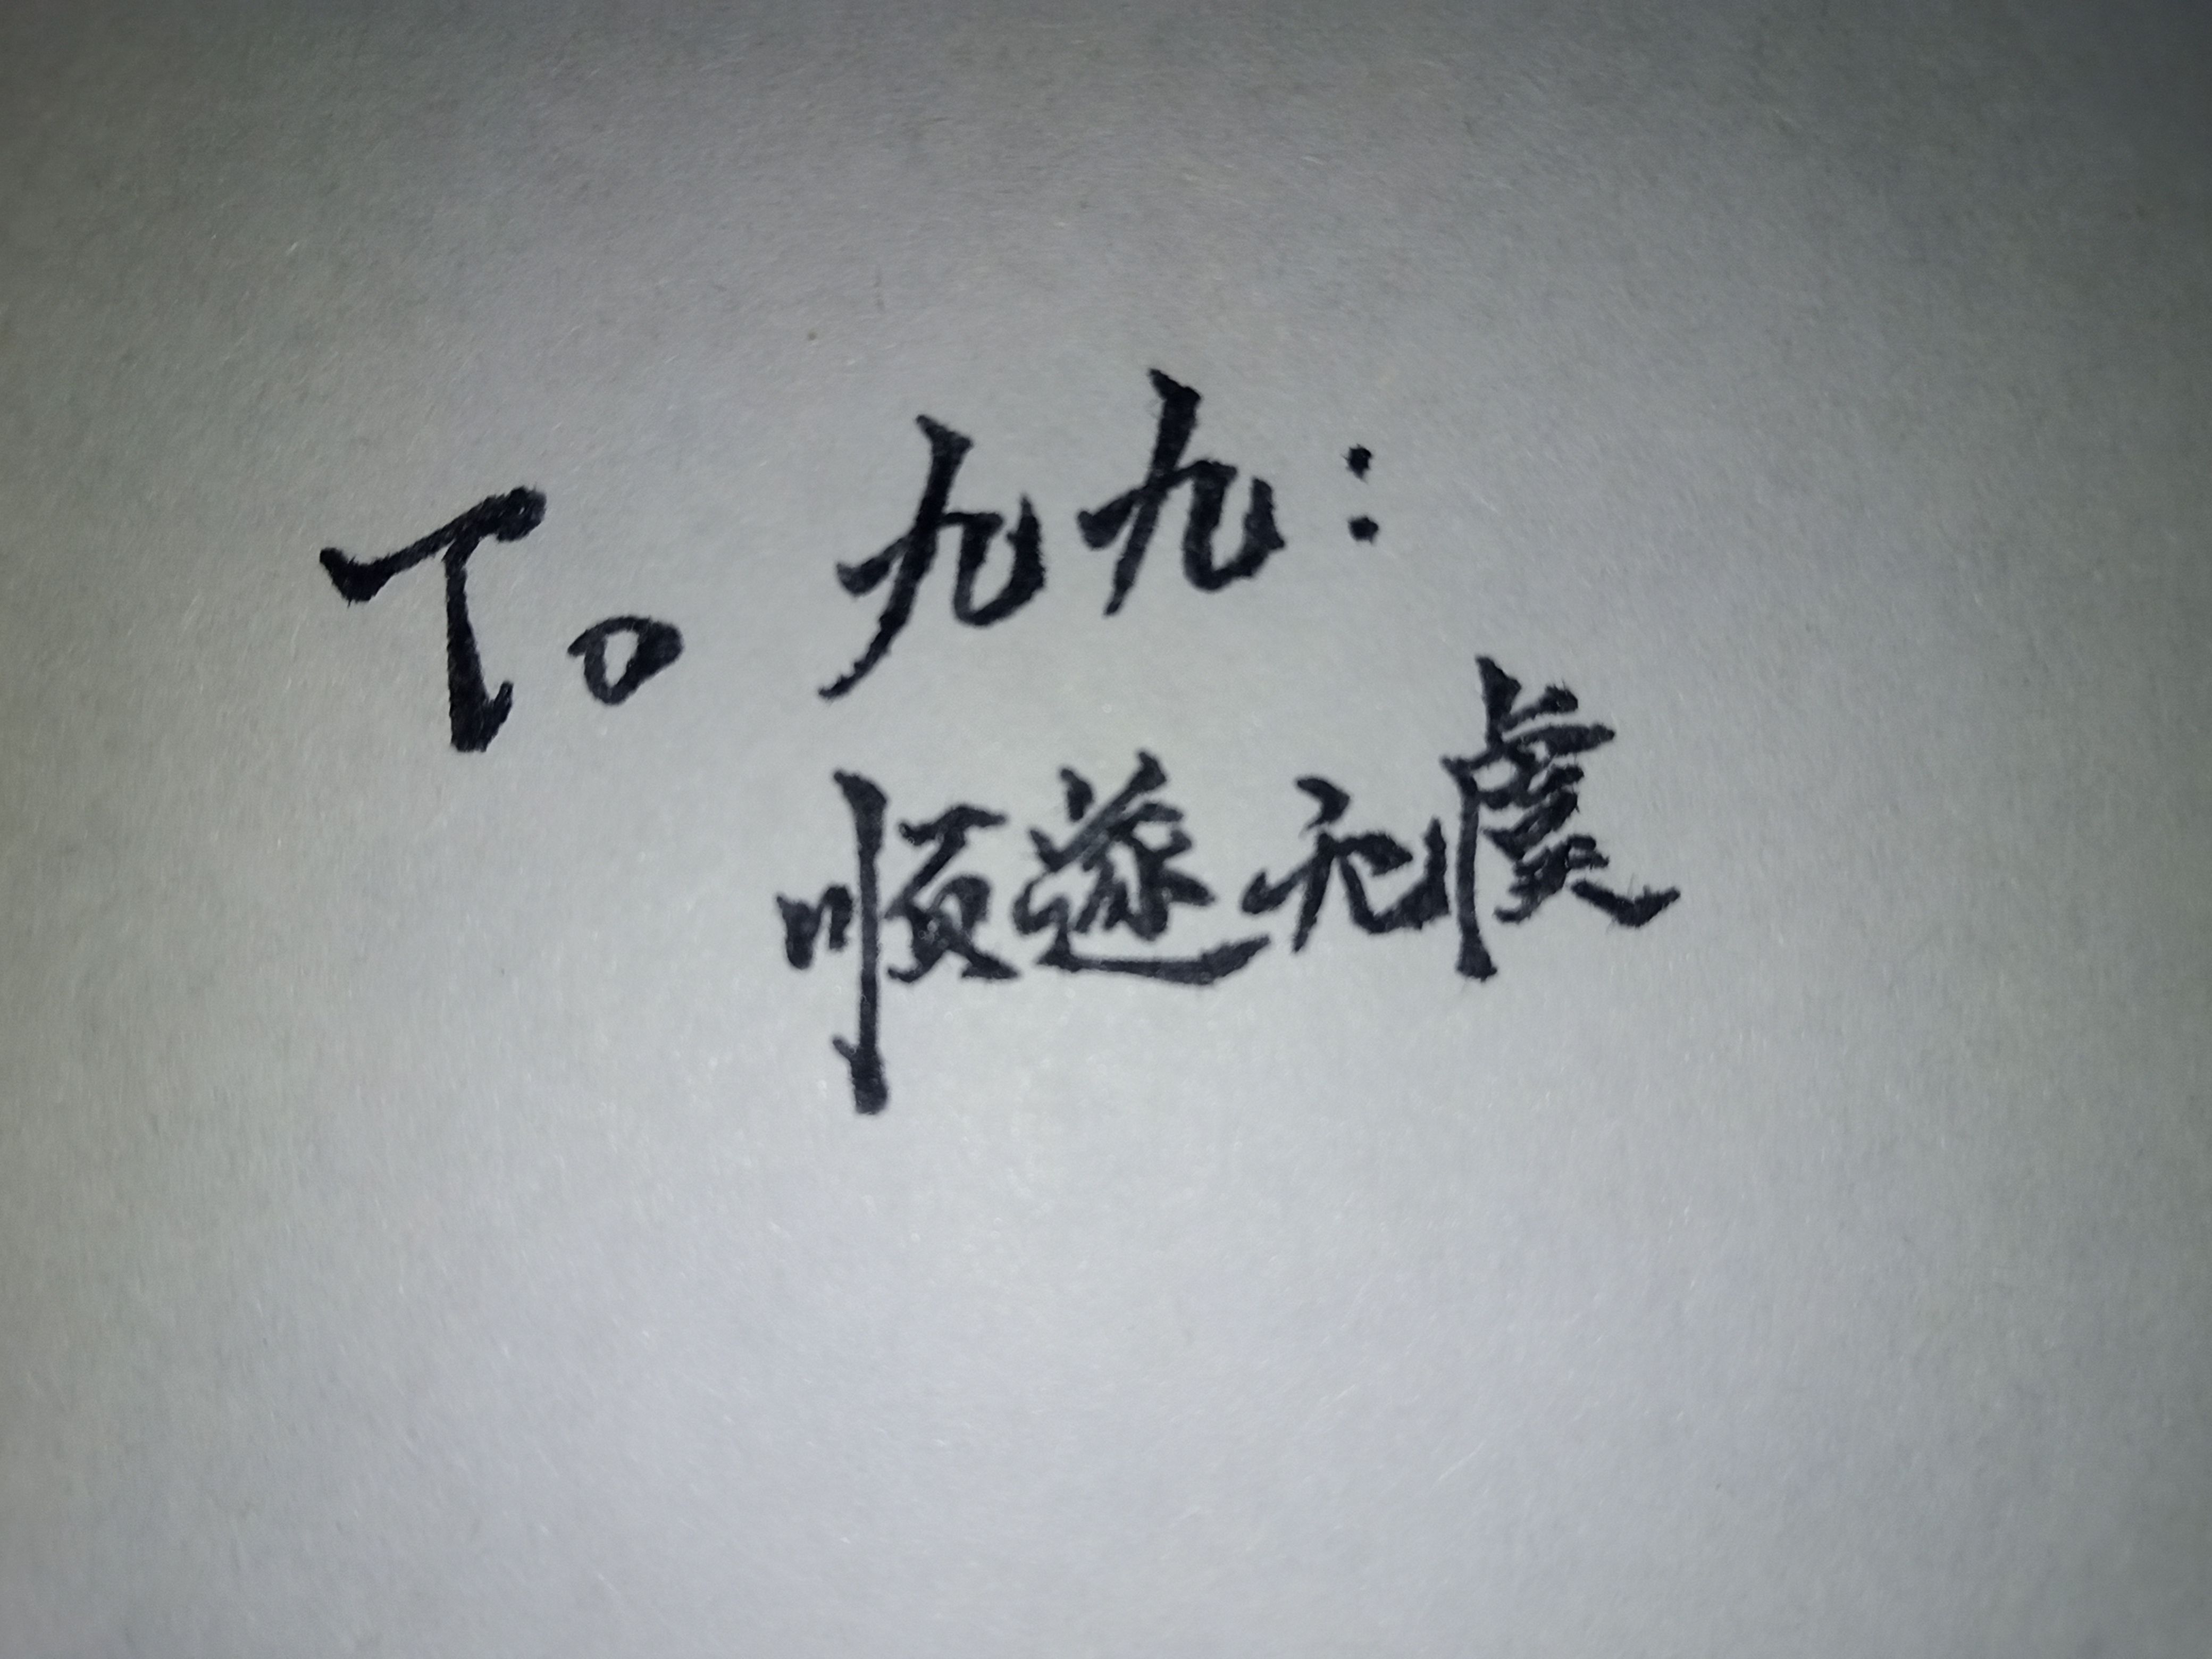 To 九九:
顺遂无虞